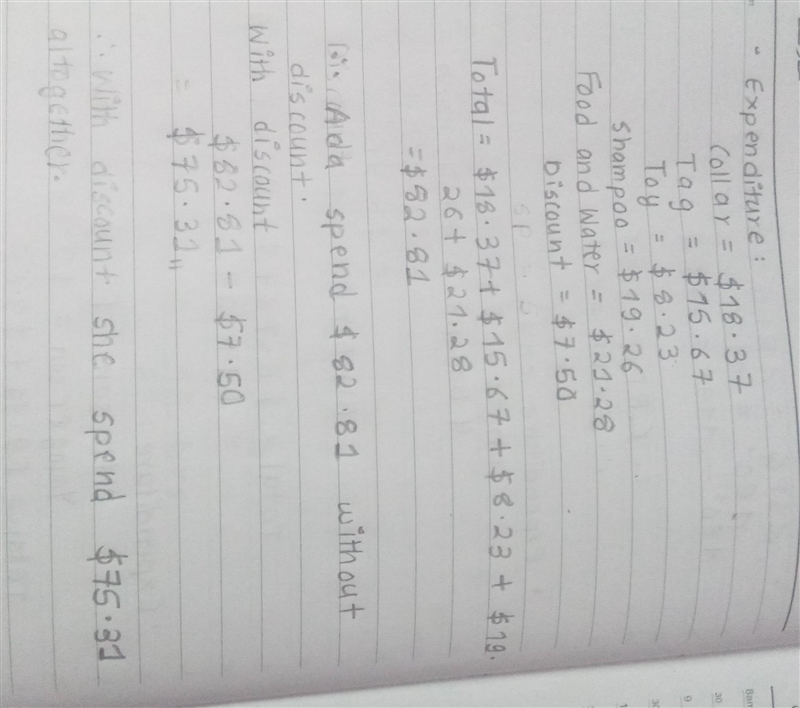 • Expenditure:
Collar = $18.37
Tag = $15.67
Toy = $8.23
Shampoo = $19.26
Food and Water = $21.28
Discount = $7.50
Total = $18.37 + $15.67 + $8.23 + $19.
26 + $21.28
= $82.81
Ada spend $82.81 without
discount.
With discount
$82.81 - $7.50
= $75.31,,
∴ With discount she spend $75.31
altogether.